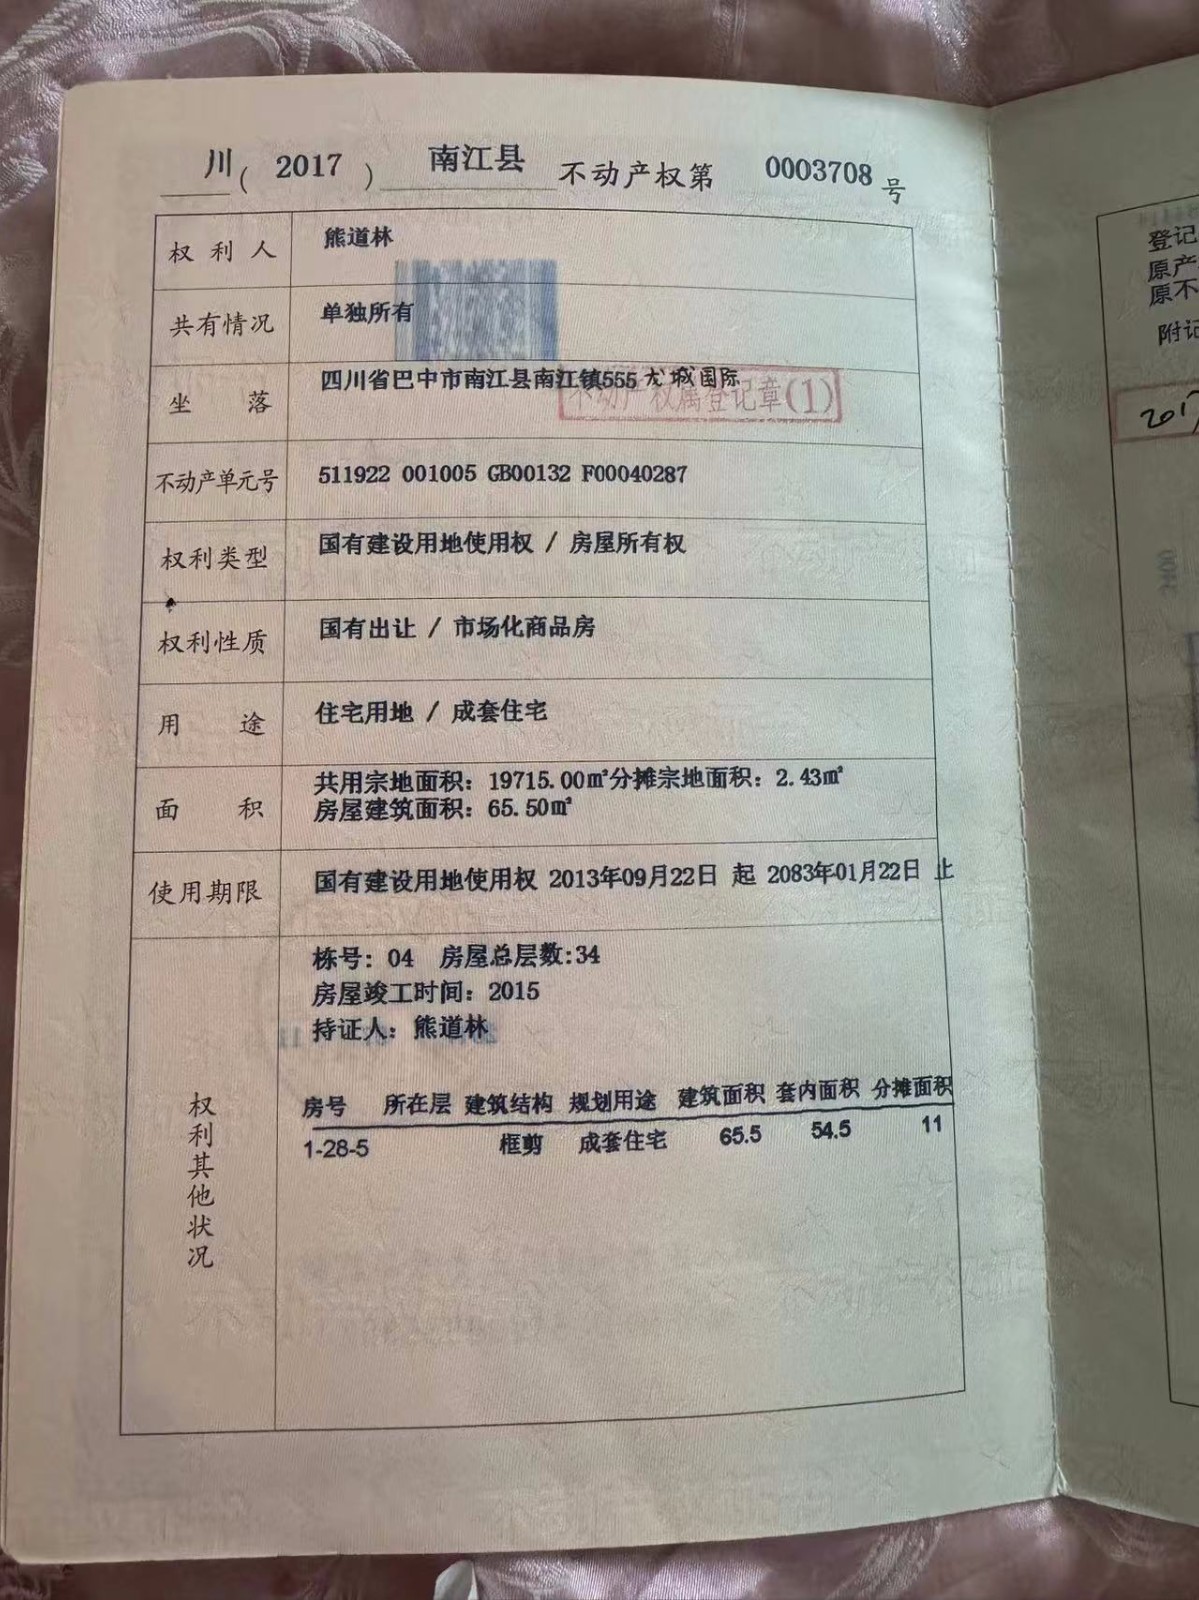 川（ 2017 ） 南江县 不动产权第 0003708 号
权利人 熊道林
共有情况 单独所有
坐落 四川省巴中市南江县南江镇555龙城国际
不动产权属登记章(1)
不动产单元号 511922 001005 GB00132 F00040287
权利类型 国有建设用地使用权 / 房屋所有权
权利性质 国有出让 / 市场化商品房
用途 住宅用地 / 成套住宅
面积 共用宗地面积：19715.00㎡分摊宗地面积：2.43㎡
房屋建筑面积：65.50㎡
使用期限 国有建设用地使用权 2013年09月22日 起 2083年01月22日 止
权利其他状况
栋号：04 房屋总层数:34
房屋竣工时间：2015
持证人：熊道林
房号 所在层 建筑结构 规划用途 建筑面积 套内面积 分摊面积
1-28-5 框剪 成套住宅 65.5 54.5 11
登记
原产
原不
附记
2017